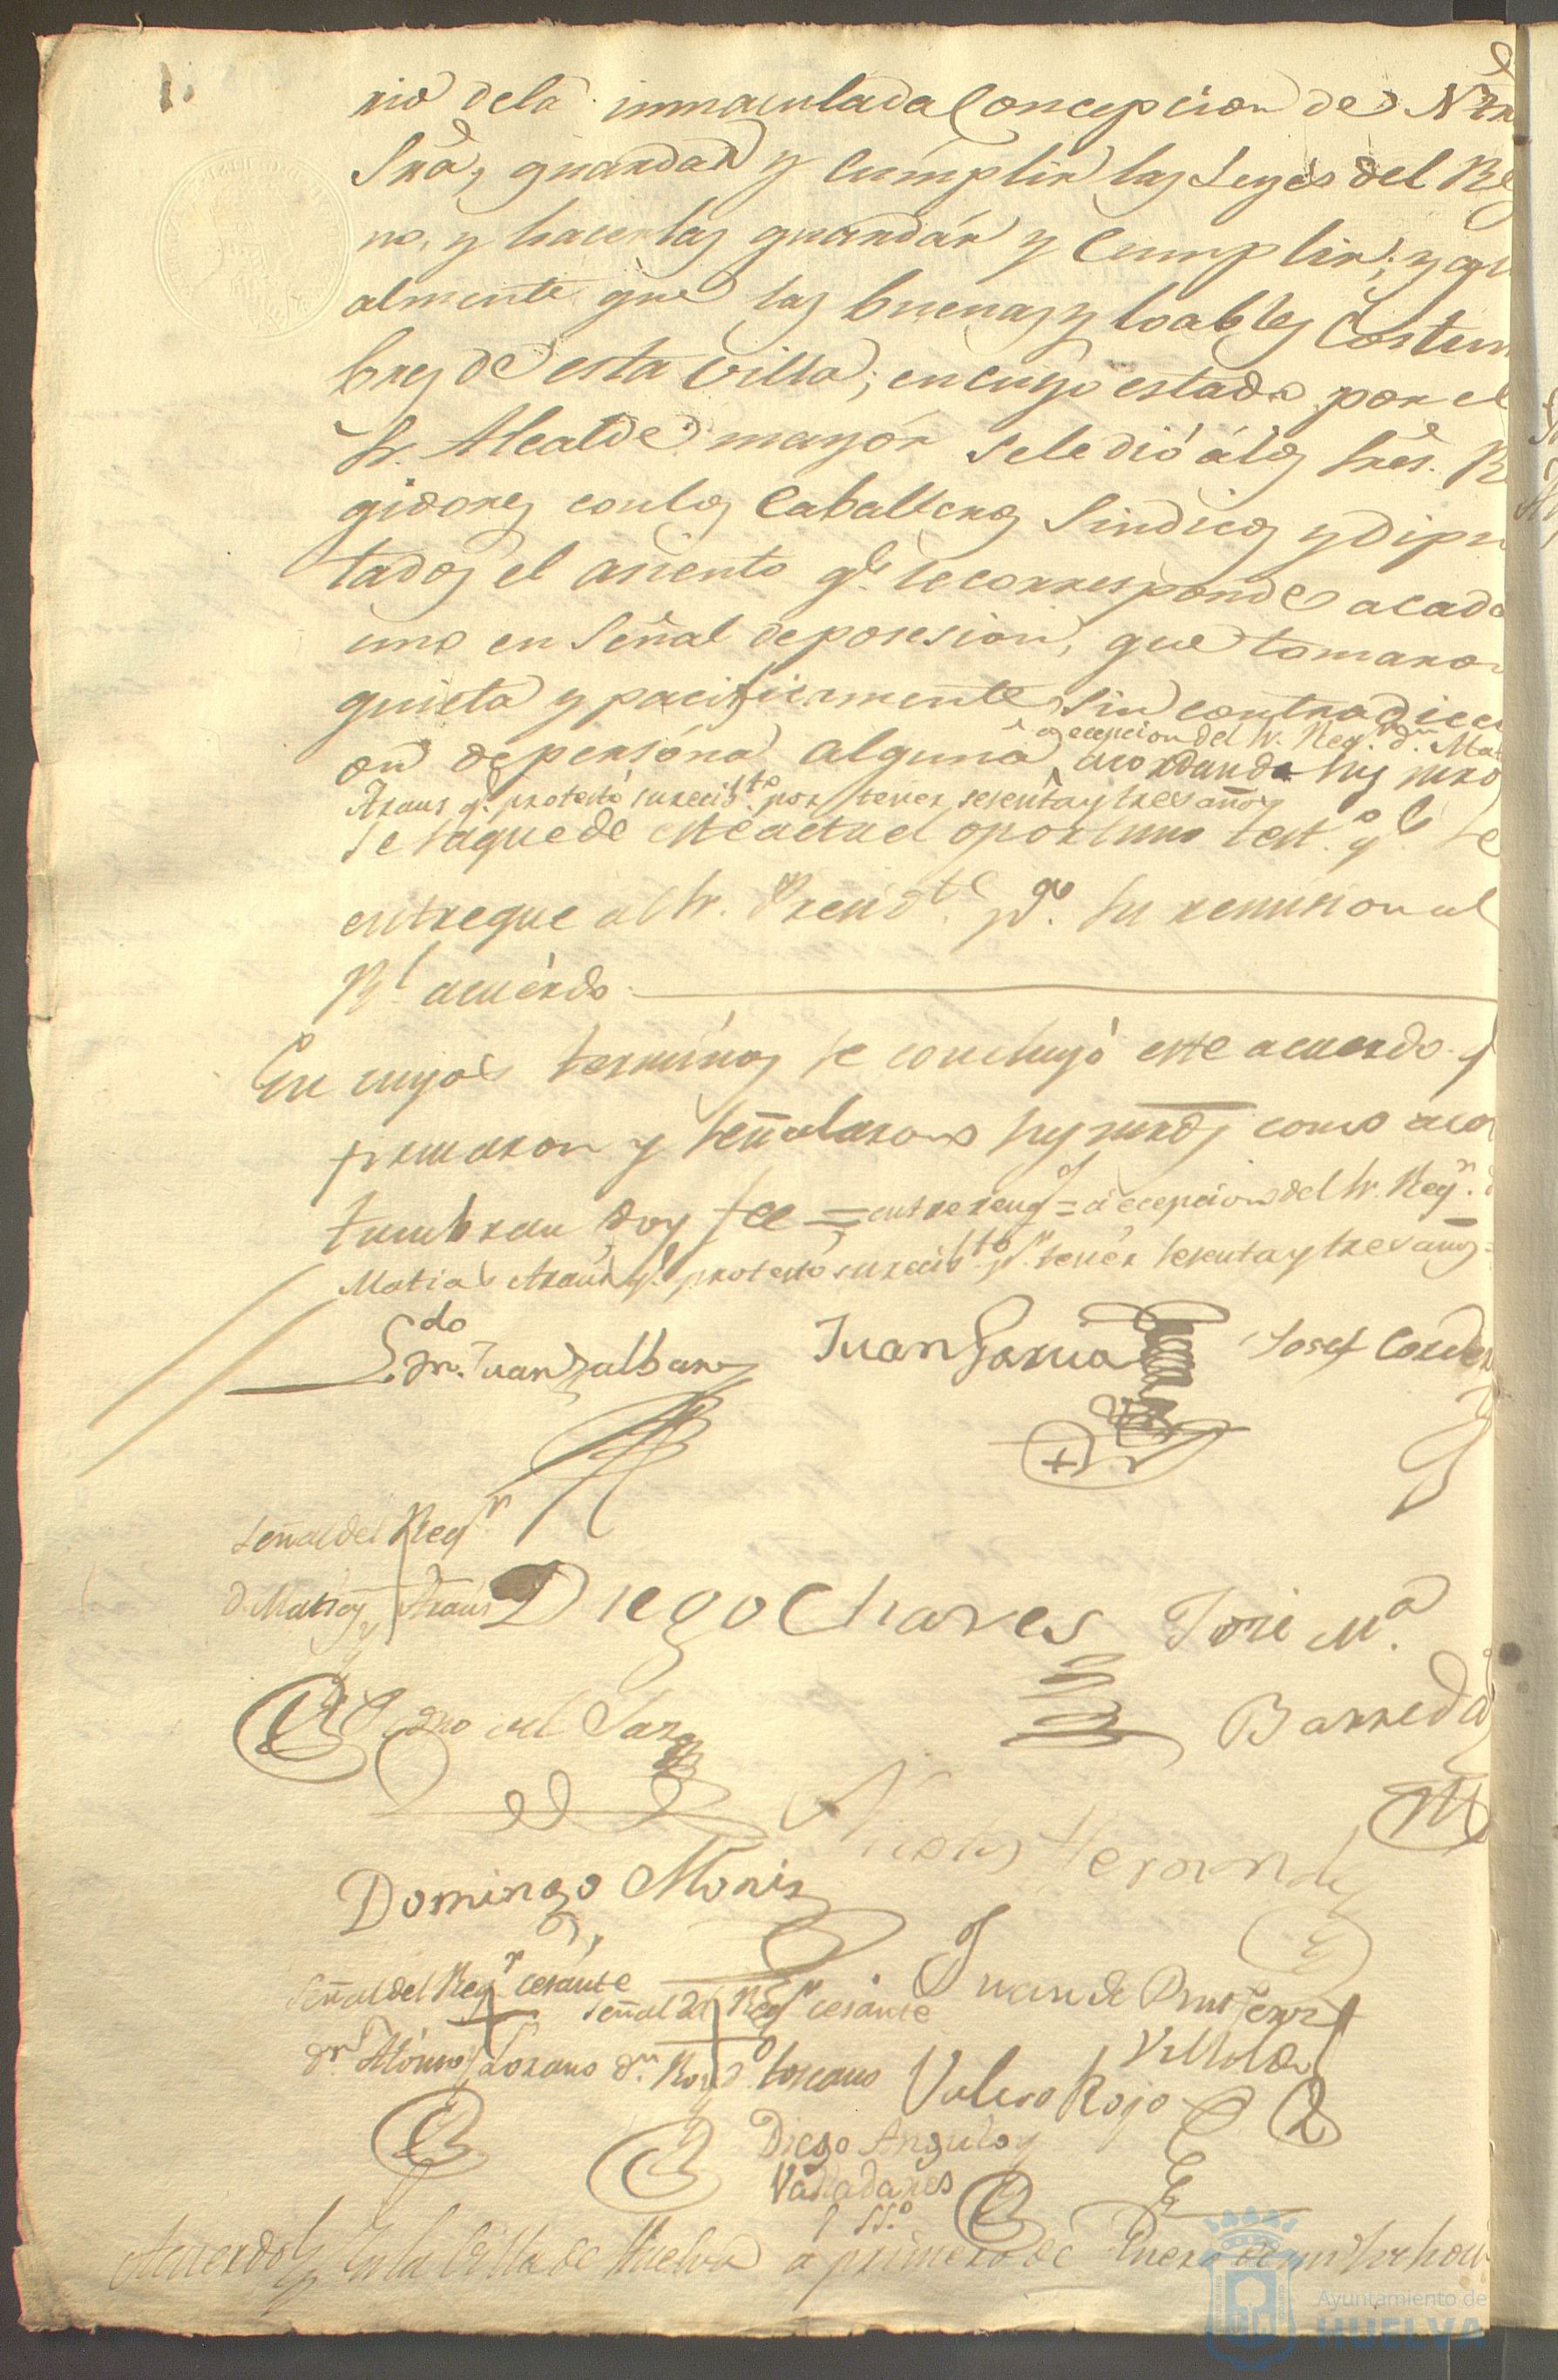 rio dela inmaculada Concepcion de Nra
Sra, guardar y Cumplir las Leyes del Rey
no, y hacerlas guardár y Cumplir; y igu
almente que las buenas y loables Costum
bres de esta Villa; en cuyo estado por el
Sr. Alcalde mayór sele dió álos Sres. Re
gidores conlos Caballeros Sindicos y Dipu
tados el asiento qe. le corresponde acada
uno en Señal deposesion, que tomaron
quieta y pacificamente sin contradicci
on depersóna alguna, acordando sus mrds
á ecepcion del Sr. Reg.r dn. Mat
Araus q.e protestó su recib.to por tener sesenta y tres años
se saque de este acta el oportuno test.o q.e se
entregue al Sr. Presid.te p.a su remision al
Rl. acuérdo.
En cuyos terminos se concluyó este acuerdo. q
firmaron y señalaron sus mrds como acos
tumbran doy fee = entrereng.s = á ecepcion del Sr. Reg.r d
Matias Araus q.e protestó su recib.to p.r tenér sesenta y tres años =
Ldo
Dn. Juan
Juan Garcia
Josef Corder
Señal del Reg.r
D. Matias Araus
Diego Chaves
Jose M.a
Barreda
del
Nicolas Hernandez
Domingo Moris
Señal del Reg.r cesánte
Señal del Reg.r cesánte
Juan de
dn Alónso Lozano dn. toscano
Valero Rojo
Diego Angulo y
Valladares
SS.o
Acuerdo En la Villa de Huelva a primero de Enero de mil ochoci
Ayuntamiento de
HUELVA